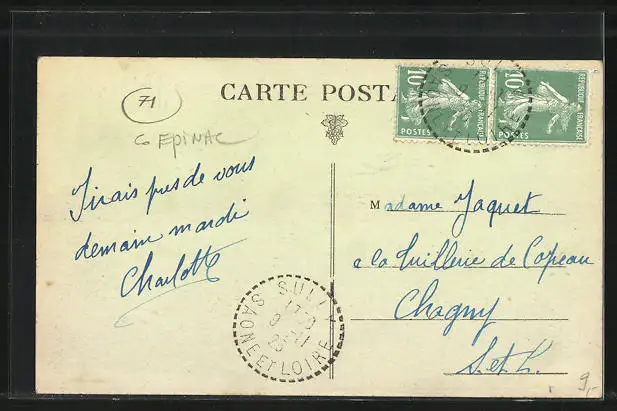 71
CARTE POSTA
G EPINAC
10
POSTES
REPUBLIQUE FRANÇAISE
10
POSTES
REPUBLIQUE FRANÇAISE
J'irais pres de vous
demain mardi
Charlotte
SULLY
SAONE ET LOIRE
Madame Jaquet
a la Tuillerie de Copeau
Chagny
S. et L.
9,-